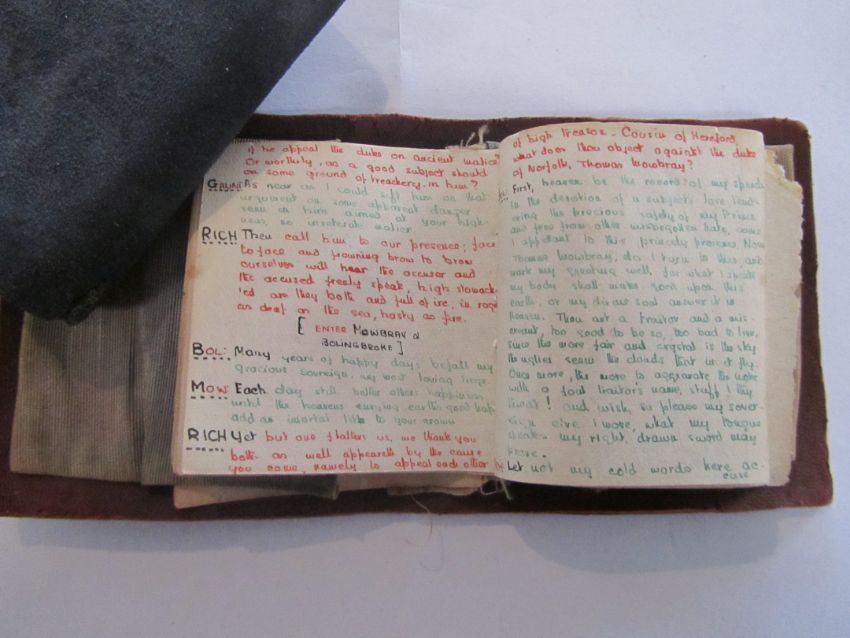 if he appeal the duke on ancient malice?
Or worthily, as a good subject should
on some ground of treachery in him?
GAUNT As near as I could sift him on that
argument on some apparent danger
seen in him aimed at your high-
ness, no inveterate malice.
RICH Then call him to our presence; face
to face and frowning brow to brow
ourselves will hear the accuser and
the accused freely speak, high stomack
'ed are they both and full of ire, in rage
as deaf as the sea, hasty as fire.
[ ENTER MOWBRAY &
BOLINGBROKE ]
BOL: Many years of happy days befall my
gracious sovereign, my most loving liege.
MOW Each day still better others happiness
until the heavens envying earths good hap
add an imortal title to your crown
RICH Yet but one flatters us, we thank you
both as well appeareth by the cause
you come, namely to appeal each other
of high treason. Cousin of Hereford,
what does thou object against the duke
of Norfolk, Thomas Mowbray?
First, heaven be the record of my speech
in the devotion of a subjects love, tend-
ering the precious safety of my Prince
and free from other misbegotten hate, come
I appelant to this princely presence. Now
Thomas Mowbray, do I turn to thee and
mark my greeting well, for what I speak
my body shall make good upon this
earth, or my divine soul answer it in
heaven. Thou art a traitor and a mis-
creant, too good to be so, too bad to live,
since the more fair and crystal is the sky
the uglier seem the clouds that in it fly.
Once more, the more to aggravate the note
with a foul traitor's name, stuff I thy
throat! and wish, so please my sover-
eign ere I move, what my tongue
speaks my right drawn sword may
prove.
Let not my cold words here ac-
cuse